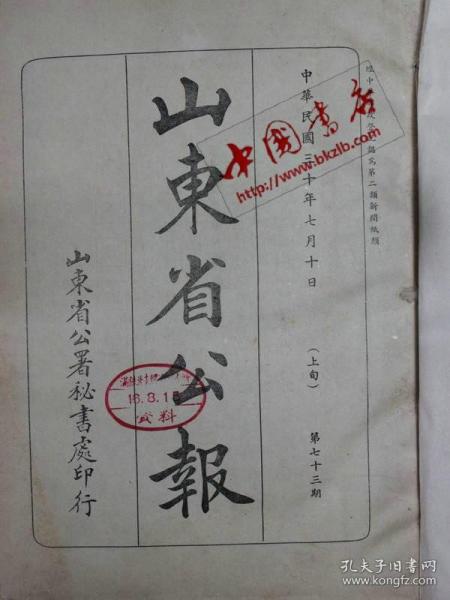 第二類新聞紙類
中華民國三十年七月十日
(上旬)
第七十三期
山東省公報
山東省公署秘書處印行
16.8.15
資料
中國書店
http://www.bkzlb.com
孔夫子旧书网
www.kongfz.com